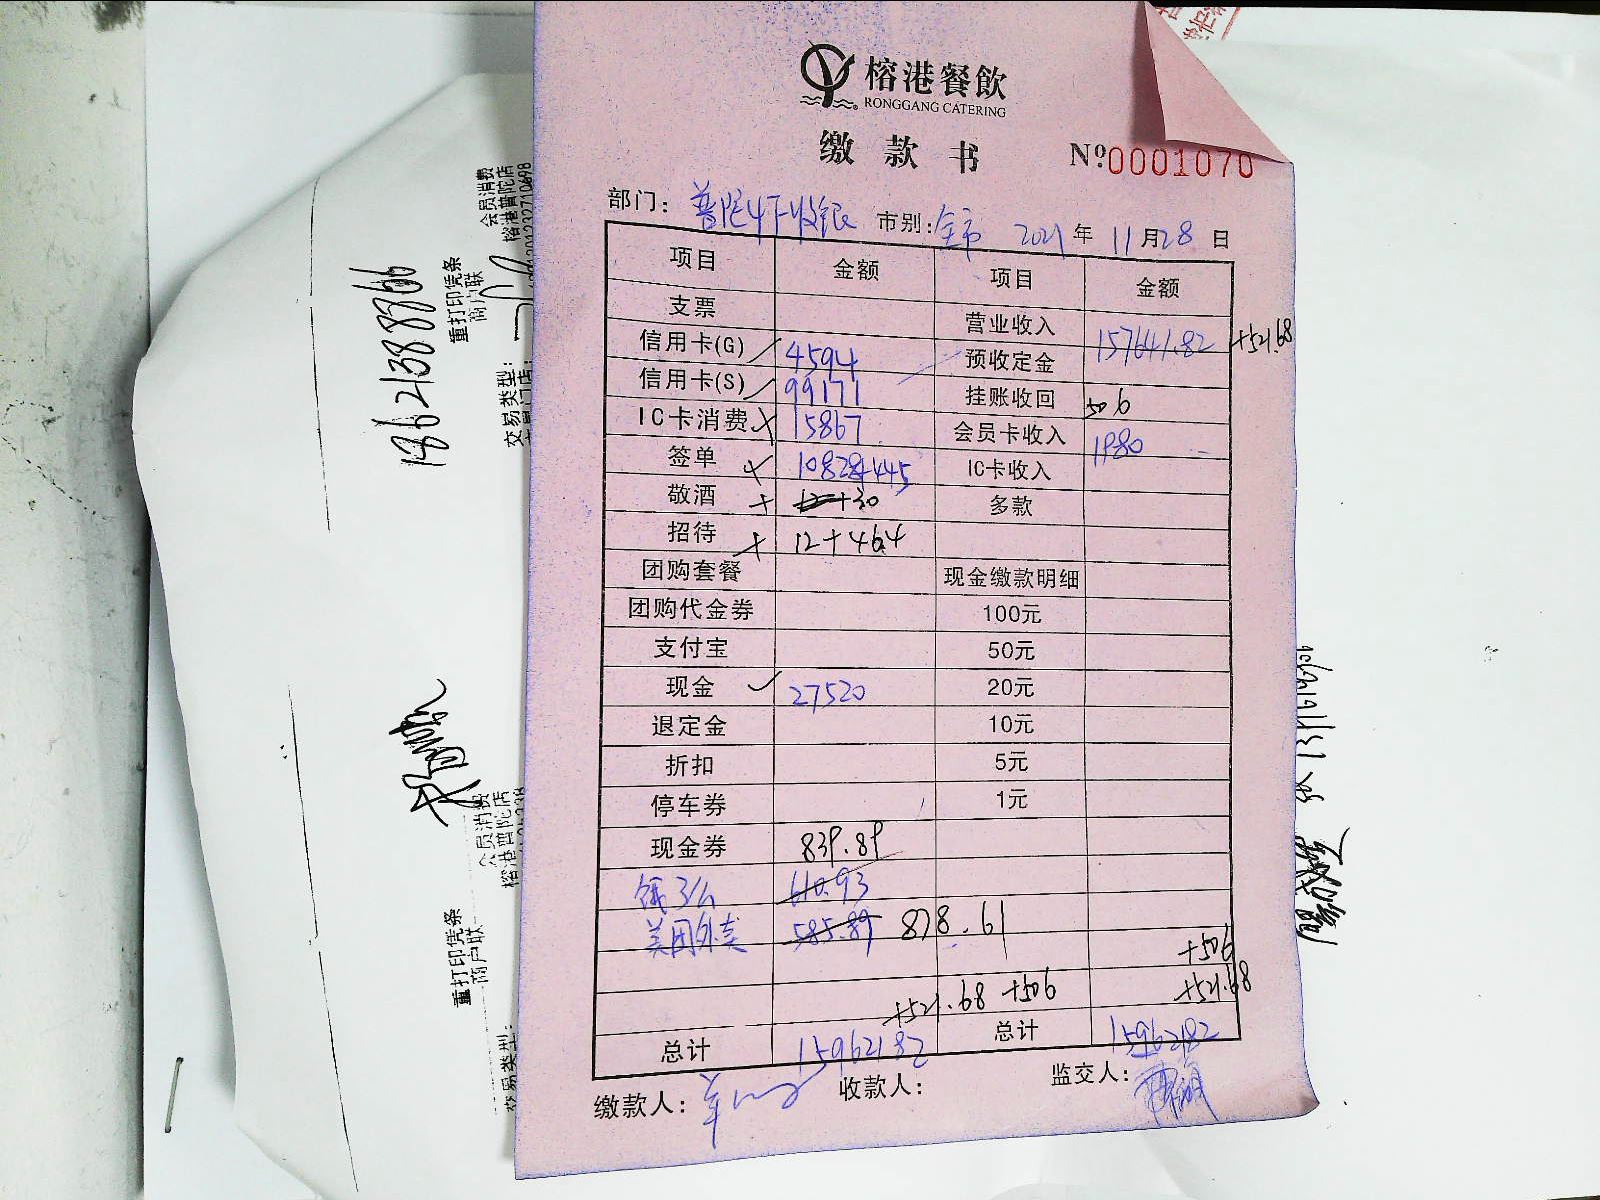 榕港餐飲
RONGGANG CATERING
缴款书 Nº0001070
部门: 普陀4F收银 市别: 全市 2021年11月28日
项目 金额 项目 金额
支票 营业收入 157641.82 +521.68
信用卡(G) 4594 预收定金
信用卡(S) 99171 挂账收回 506
IC卡消费 15867 会员卡收入 1980
签单 10828+445 IC卡收入
敬酒 +30 多款
招待 12+464
团购套餐 现金缴款明细
团购代金券 100元
支付宝 50元
现金 27520 20元
退定金 10元
折扣 5元
停车券 1元
现金券 839.89
饿了么 610.93
美团外卖 585.89 878.61
+506
+521.68 +506 +521.68
总计 159621.82 总计 159621.82
缴款人: 收款人: 监交人:
会员消费
榕港普陀店
重打印凭条
商户联
交易类型:
13621388366
会员消费
榕港普陀店
重打印凭条
商户联
交易类型: